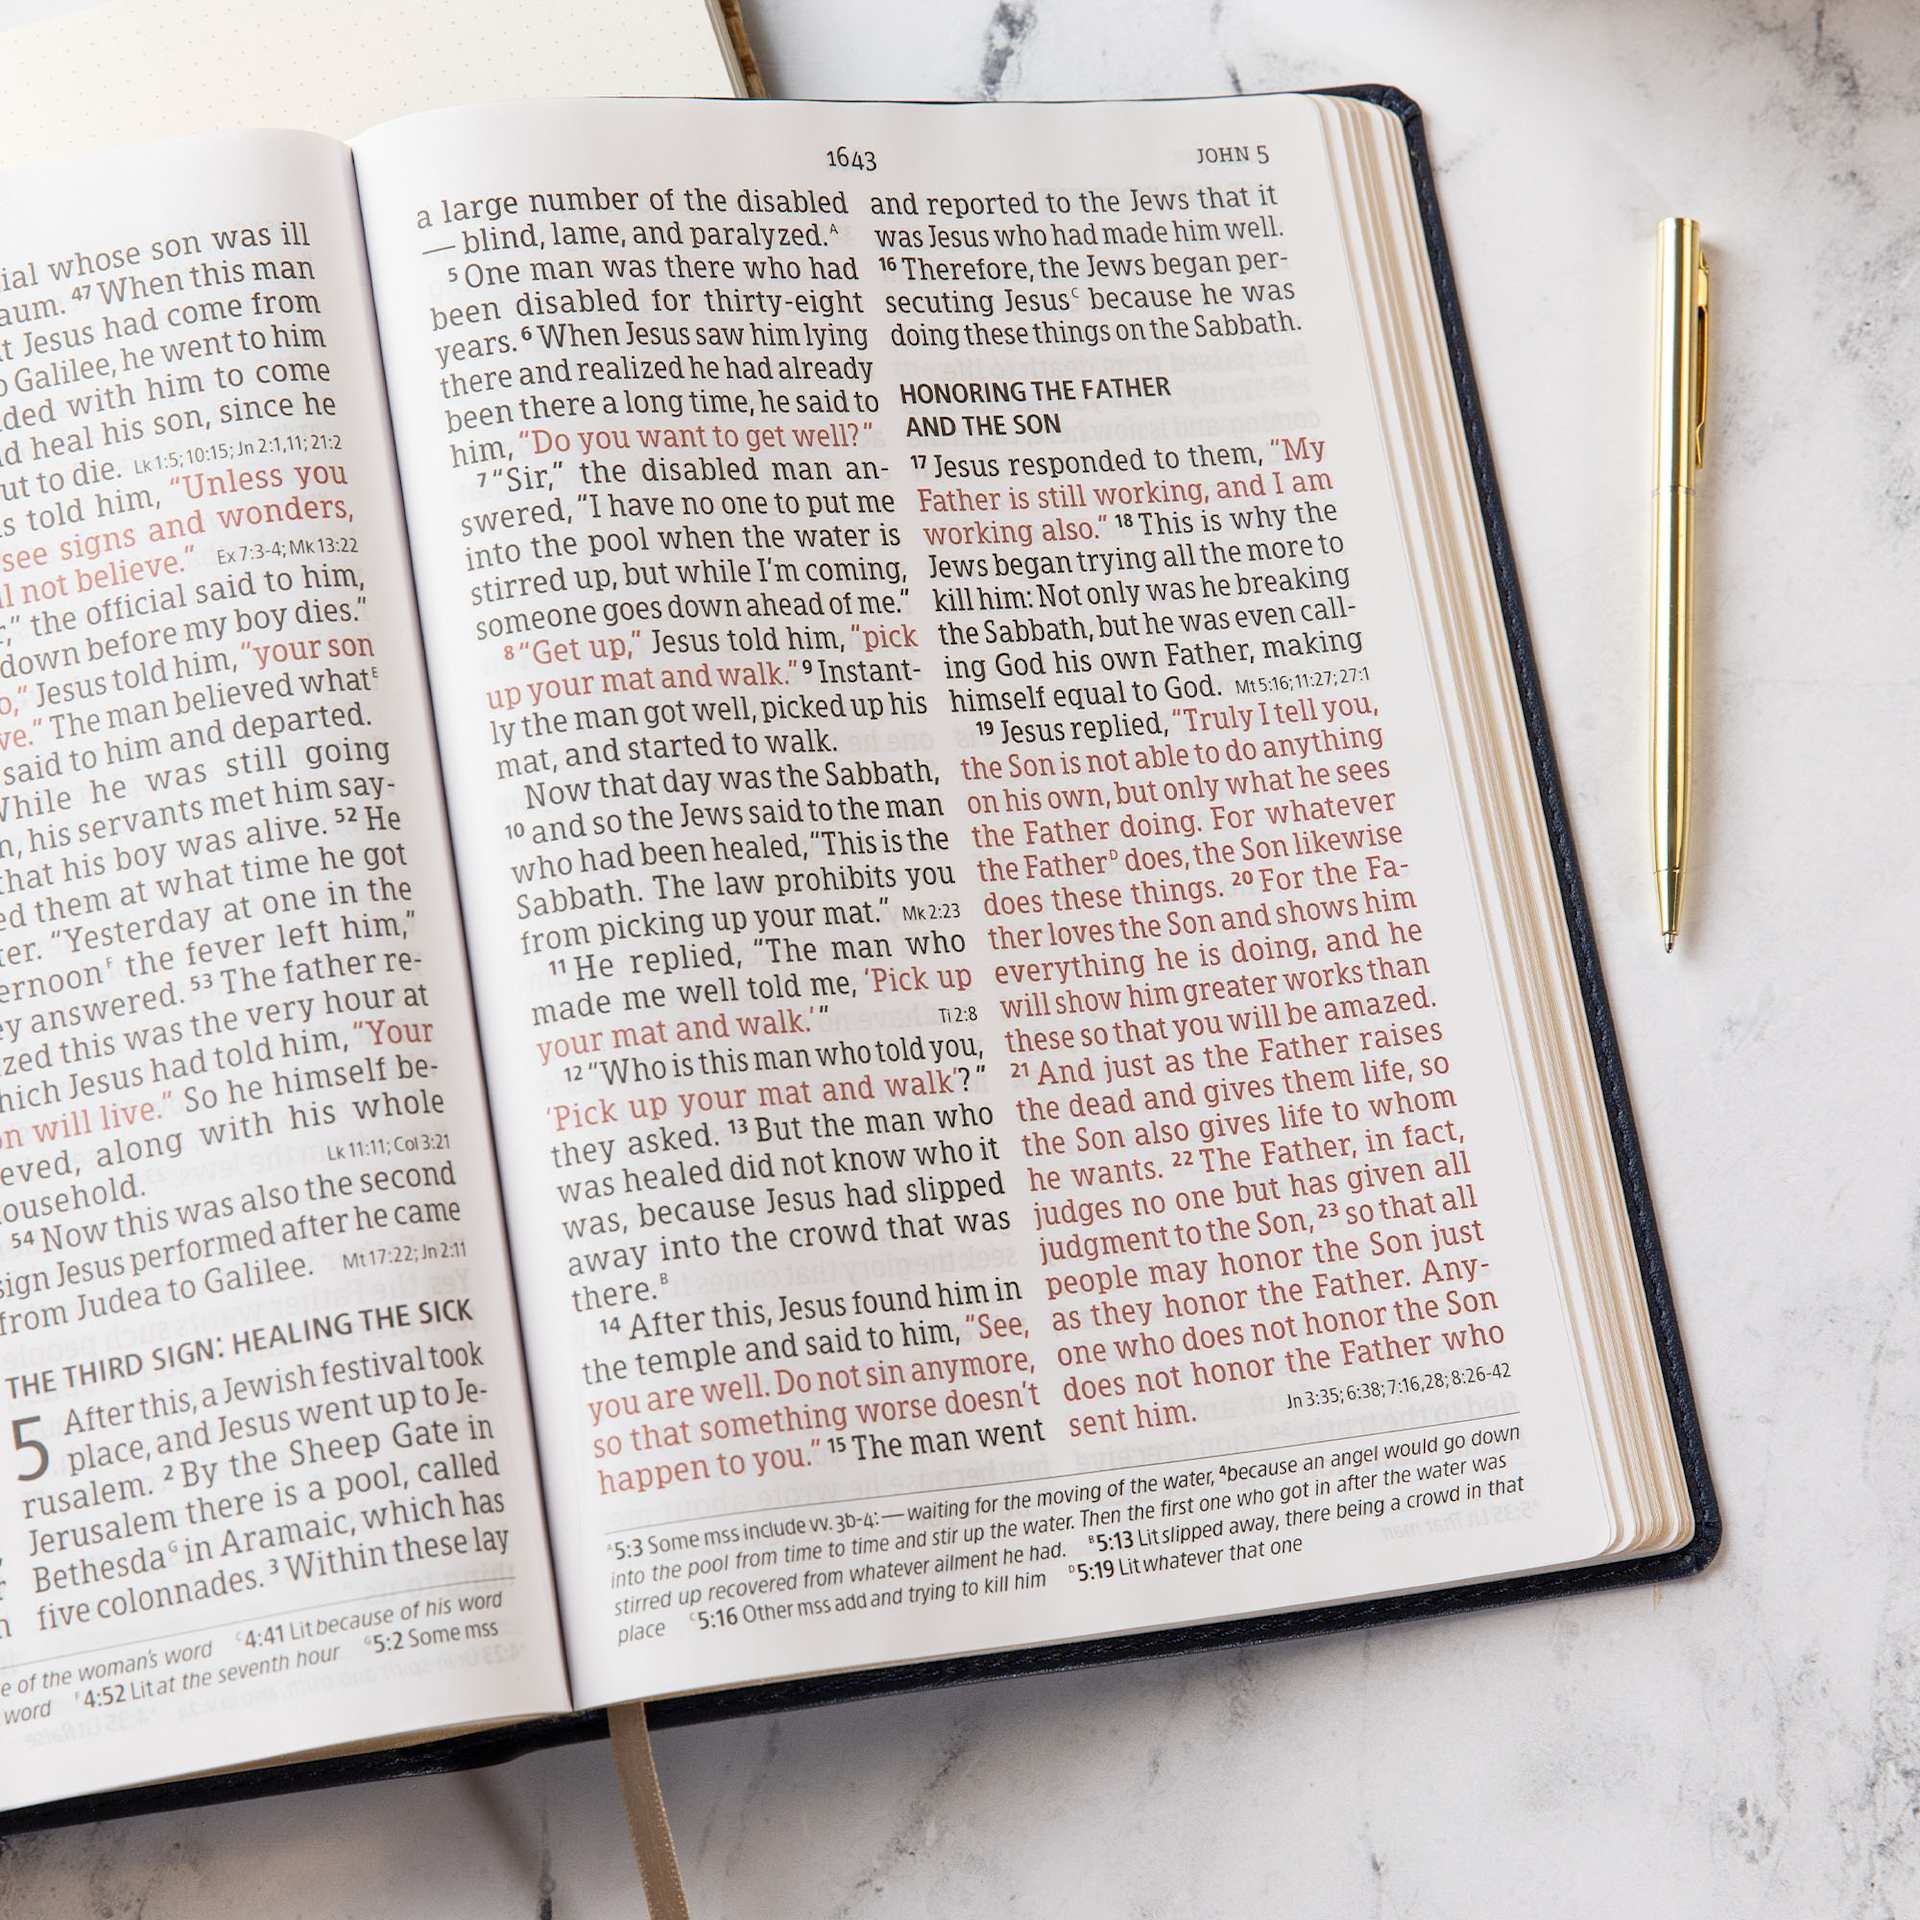 whose son was ill
47 When this man
Jesus had come from
Galilee, he went to him
with him to come
heal his son, since he
to die. Lk 1:5; 10:15; Jn 2:1,11; 21:2
told him, “Unless you
see signs and wonders,
not believe.” Ex 7:3-4; Mk 13:22
the official said to him,
down before my boy dies.”
Jesus told him, “your son
The man believed whatE
said to him and departed.
he was still going
his servants met him say-
that his boy was alive. 52 He
them at what time he got
“Yesterday at one in the
F the fever left him,”
answered. 53 The father re-
this was the very hour at
which Jesus had told him, “Your
will live.” So he himself be-
along with his whole
Lk 11:11; Col 3:21
54 Now this was also the second
sign Jesus performed after he came
from Judea to Galilee. Mt 17:22; Jn 2:11
THE THIRD SIGN: HEALING THE SICK
5 After this, a Jewish festival took
place, and Jesus went up to Je-
rusalem. 2 By the Sheep Gate in
Jerusalem there is a pool, called
BethesdaG in Aramaic, which has
five colonnades. 3 Within these lay
of the woman’s word C4:41 Lit because of his word
word F4:52 Lit at the seventh hour G5:2 Some mss
1643
JOHN 5
a large number of the disabled
— blind, lame, and paralyzed.A
5 One man was there who had
been disabled for thirty-eight
years. 6 When Jesus saw him lying
there and realized he had already
been there a long time, he said to
him, “Do you want to get well?”
7 “Sir,” the disabled man an-
swered, “I have no one to put me
into the pool when the water is
stirred up, but while I’m coming,
someone goes down ahead of me.”
8 “Get up,” Jesus told him, “pick
up your mat and walk.” 9 Instant-
ly the man got well, picked up his
mat, and started to walk.
Now that day was the Sabbath,
10 and so the Jews said to the man
who had been healed, “This is the
Sabbath. The law prohibits you
from picking up your mat.” Mk 2:23
11 He replied, “The man who
made me well told me, ‘Pick up
your mat and walk.’” Ti 2:8
12 “Who is this man who told you,
‘Pick up your mat and walk’?”
they asked. 13 But the man who
was healed did not know who it
was, because Jesus had slipped
away into the crowd that was
there.B
14 After this, Jesus found him in
the temple and said to him, “See,
you are well. Do not sin anymore,
so that something worse doesn’t
happen to you.” 15 The man went
and reported to the Jews that it
was Jesus who had made him well.
16 Therefore, the Jews began per-
secuting JesusC because he was
doing these things on the Sabbath.
HONORING THE FATHER
AND THE SON
17 Jesus responded to them, “My
Father is still working, and I am
working also.” 18 This is why the
Jews began trying all the more to
kill him: Not only was he breaking
the Sabbath, but he was even call-
ing God his own Father, making
himself equal to God. Mt 5:16; 11:27; 27:1
19 Jesus replied, “Truly I tell you,
the Son is not able to do anything
on his own, but only what he sees
the Father doing. For whatever
the FatherD does, the Son likewise
does these things. 20 For the Fa-
ther loves the Son and shows him
everything he is doing, and he
will show him greater works than
these so that you will be amazed.
21 And just as the Father raises
the dead and gives them life, so
the Son also gives life to whom
he wants. 22 The Father, in fact,
judges no one but has given all
judgment to the Son, 23 so that all
people may honor the Son just
as they honor the Father. Any-
one who does not honor the Son
does not honor the Father who
sent him. Jn 3:35; 6:38; 7:16,28; 8:26-42
A5:3 Some mss include vv. 3b-4: — waiting for the moving of the water, 4because an angel would go down
into the pool from time to time and stir up the water. Then the first one who got in after the water was
stirred up recovered from whatever ailment he had. B5:13 Lit slipped away, there being a crowd in that
place C5:16 Other mss add and trying to kill him D5:19 Lit whatever that one